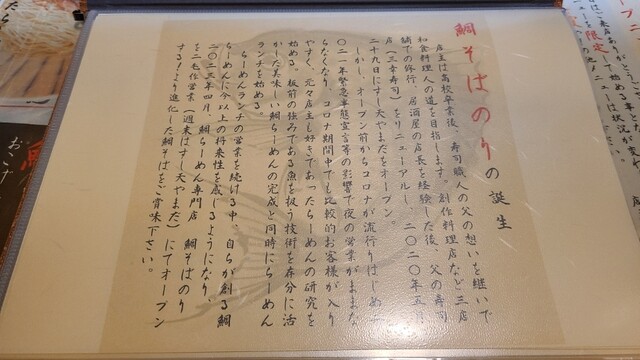 鯛そばのりの誕生
店主は高校卒業後、寿司職人の父の想いを継いで
和食料理人の道を目指します。創作料理店など三店
舗での修行、居酒屋の店長を経験した後、父の寿司
店(三幸寿司)をリニューアルし、二〇二〇年五月
二十九日にすし天やまだをオープン。
しかし、オープン前からコロナが流行りはじめ二
〇二一年緊急事態宣言等の影響で夜の営業がままな
らなくなり、コロナ期間中でも比較的お客様が入り
やすく、元々店主も好きであったらーめんの研究を
始める。板前の強みである魚を扱う技術を存分に活
かした美味しい鯛らーめんの完成と同時にらーめん
ランチを始める。
らーめんランチの営業を続ける中、自らが創る鯛
らーめんに今以上の将来性を感じるようになり、
二〇二三年四月、鯛らーめん専門店 鯛そばのり
を二毛作営業(週末はすし天やまだ)にてオープン
する!より進化した鯛そばをご賞味下さい。